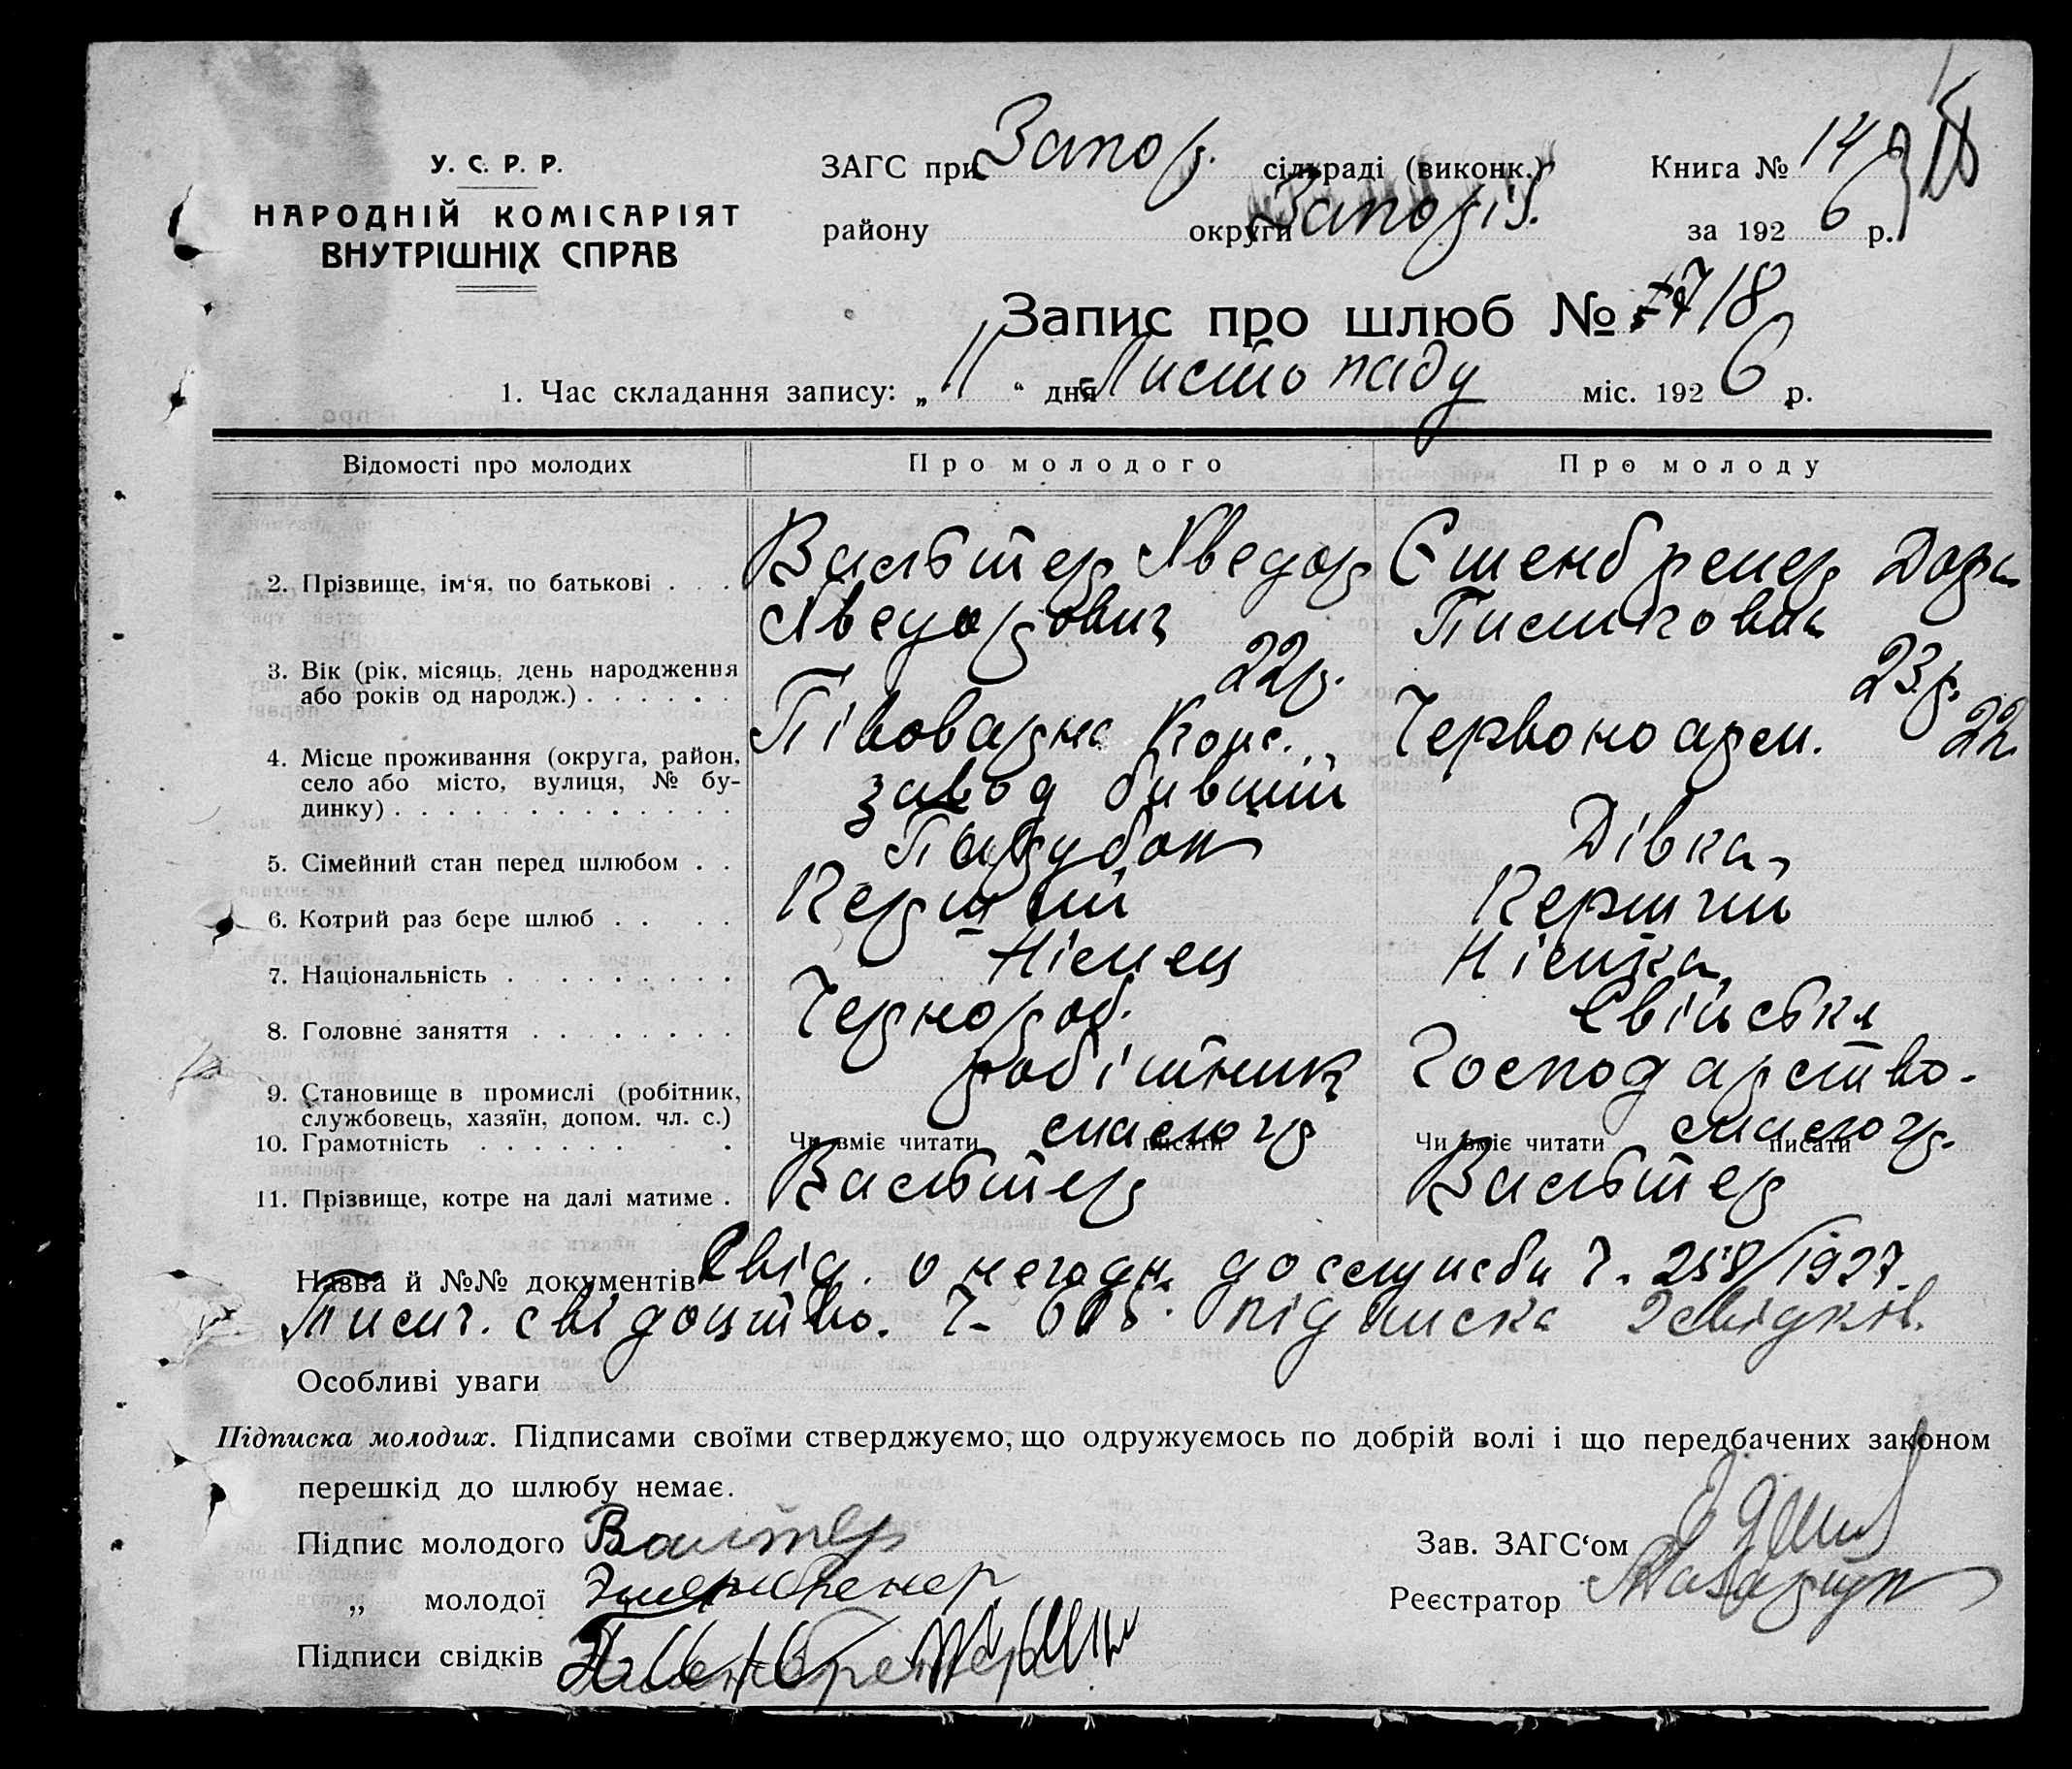 У. С. Р. Р.
НАРОДНІЙ КОМІСАРІЯТ
ВНУТРІШНІХ СПРАВ
ЗАГС при Запор. сільраді (виконк.)
району округи Запоріз.
Книга № 14
за 1926 р.
Запис про шлюб № 718
1. Час складання запису: „11“ дня Листопаду міс. 1926 р.
Відомості про молодих
Про молодого
Про молоду
2. Прізвище, ім‘я, по батькові . . .
Вальтер Хведор
Хведорович
Єшенбренер Дора
3. Вік (рік, місяць, день народження
або років од народж.) . . . . . .
22 р.
23 р.
4. Місце проживання (округа, район,
село або місто, вулиця, № бу-
динку) . . . . . . . . . . . . .
Півоварна
завод бивший
Червоноарм. 22
5. Сімейний стан перед шлюбом . .
Парубок
Дівка
6. Котрий раз бере шлюб . . . .
Перший
Перший
7. Національність . . . . . . . . .
Німец
Німка
8. Головне заняття . . . . . . . .
Чернороб.
Свійське
Господарство.
9. Становище в промислі (робітник,
службовець, хазяїн, допом. чл. с.)
робітник
10. Грамотність . . . . . . .
Чи вміє читати писати
Чи вміє читати писати
11. Прізвище, котре на далі матиме .
Вальтер
Вальтер
Назва й №№ документів Свід. о негодн. до служби Ч. 258/1927.
Тимч. свідоцтво. Ч. підписка 2 свідків.
Особливі уваги
Підписка молодих. Підписами своїми стверджуємо, що одружуємось по добрій волі і що передбачених законом
перешкід до шлюбу немає.
Підпис молодого Валтер
„ молодої Эшенбренер
Підписи свідків
Зав. ЗАГС‘ом
Реєстратор